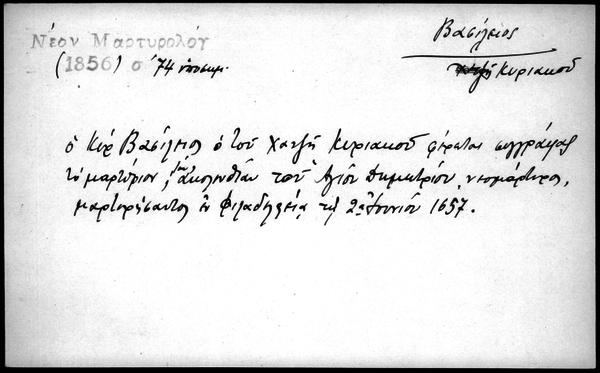 Νέον Μαρτυρολόγ
(1856) σ 74 ὑποσημ.
Βασίλειος
Κυριακοῦ
ὁ Κὺρ Βασίλειος ὁ τοῦ Χατζῆ Κυριακοῦ φέρεται συγγράψας
τὸ μαρτύριον, τὴν ἀκολουθίαν τοῦ Ἁγίου Δημητρίου, νεομάρτυρος,
μαρτυρήσαντος ἐν Φιλαδελφείᾳ τῇ 2ᾳ Ἰουνίου 1657.